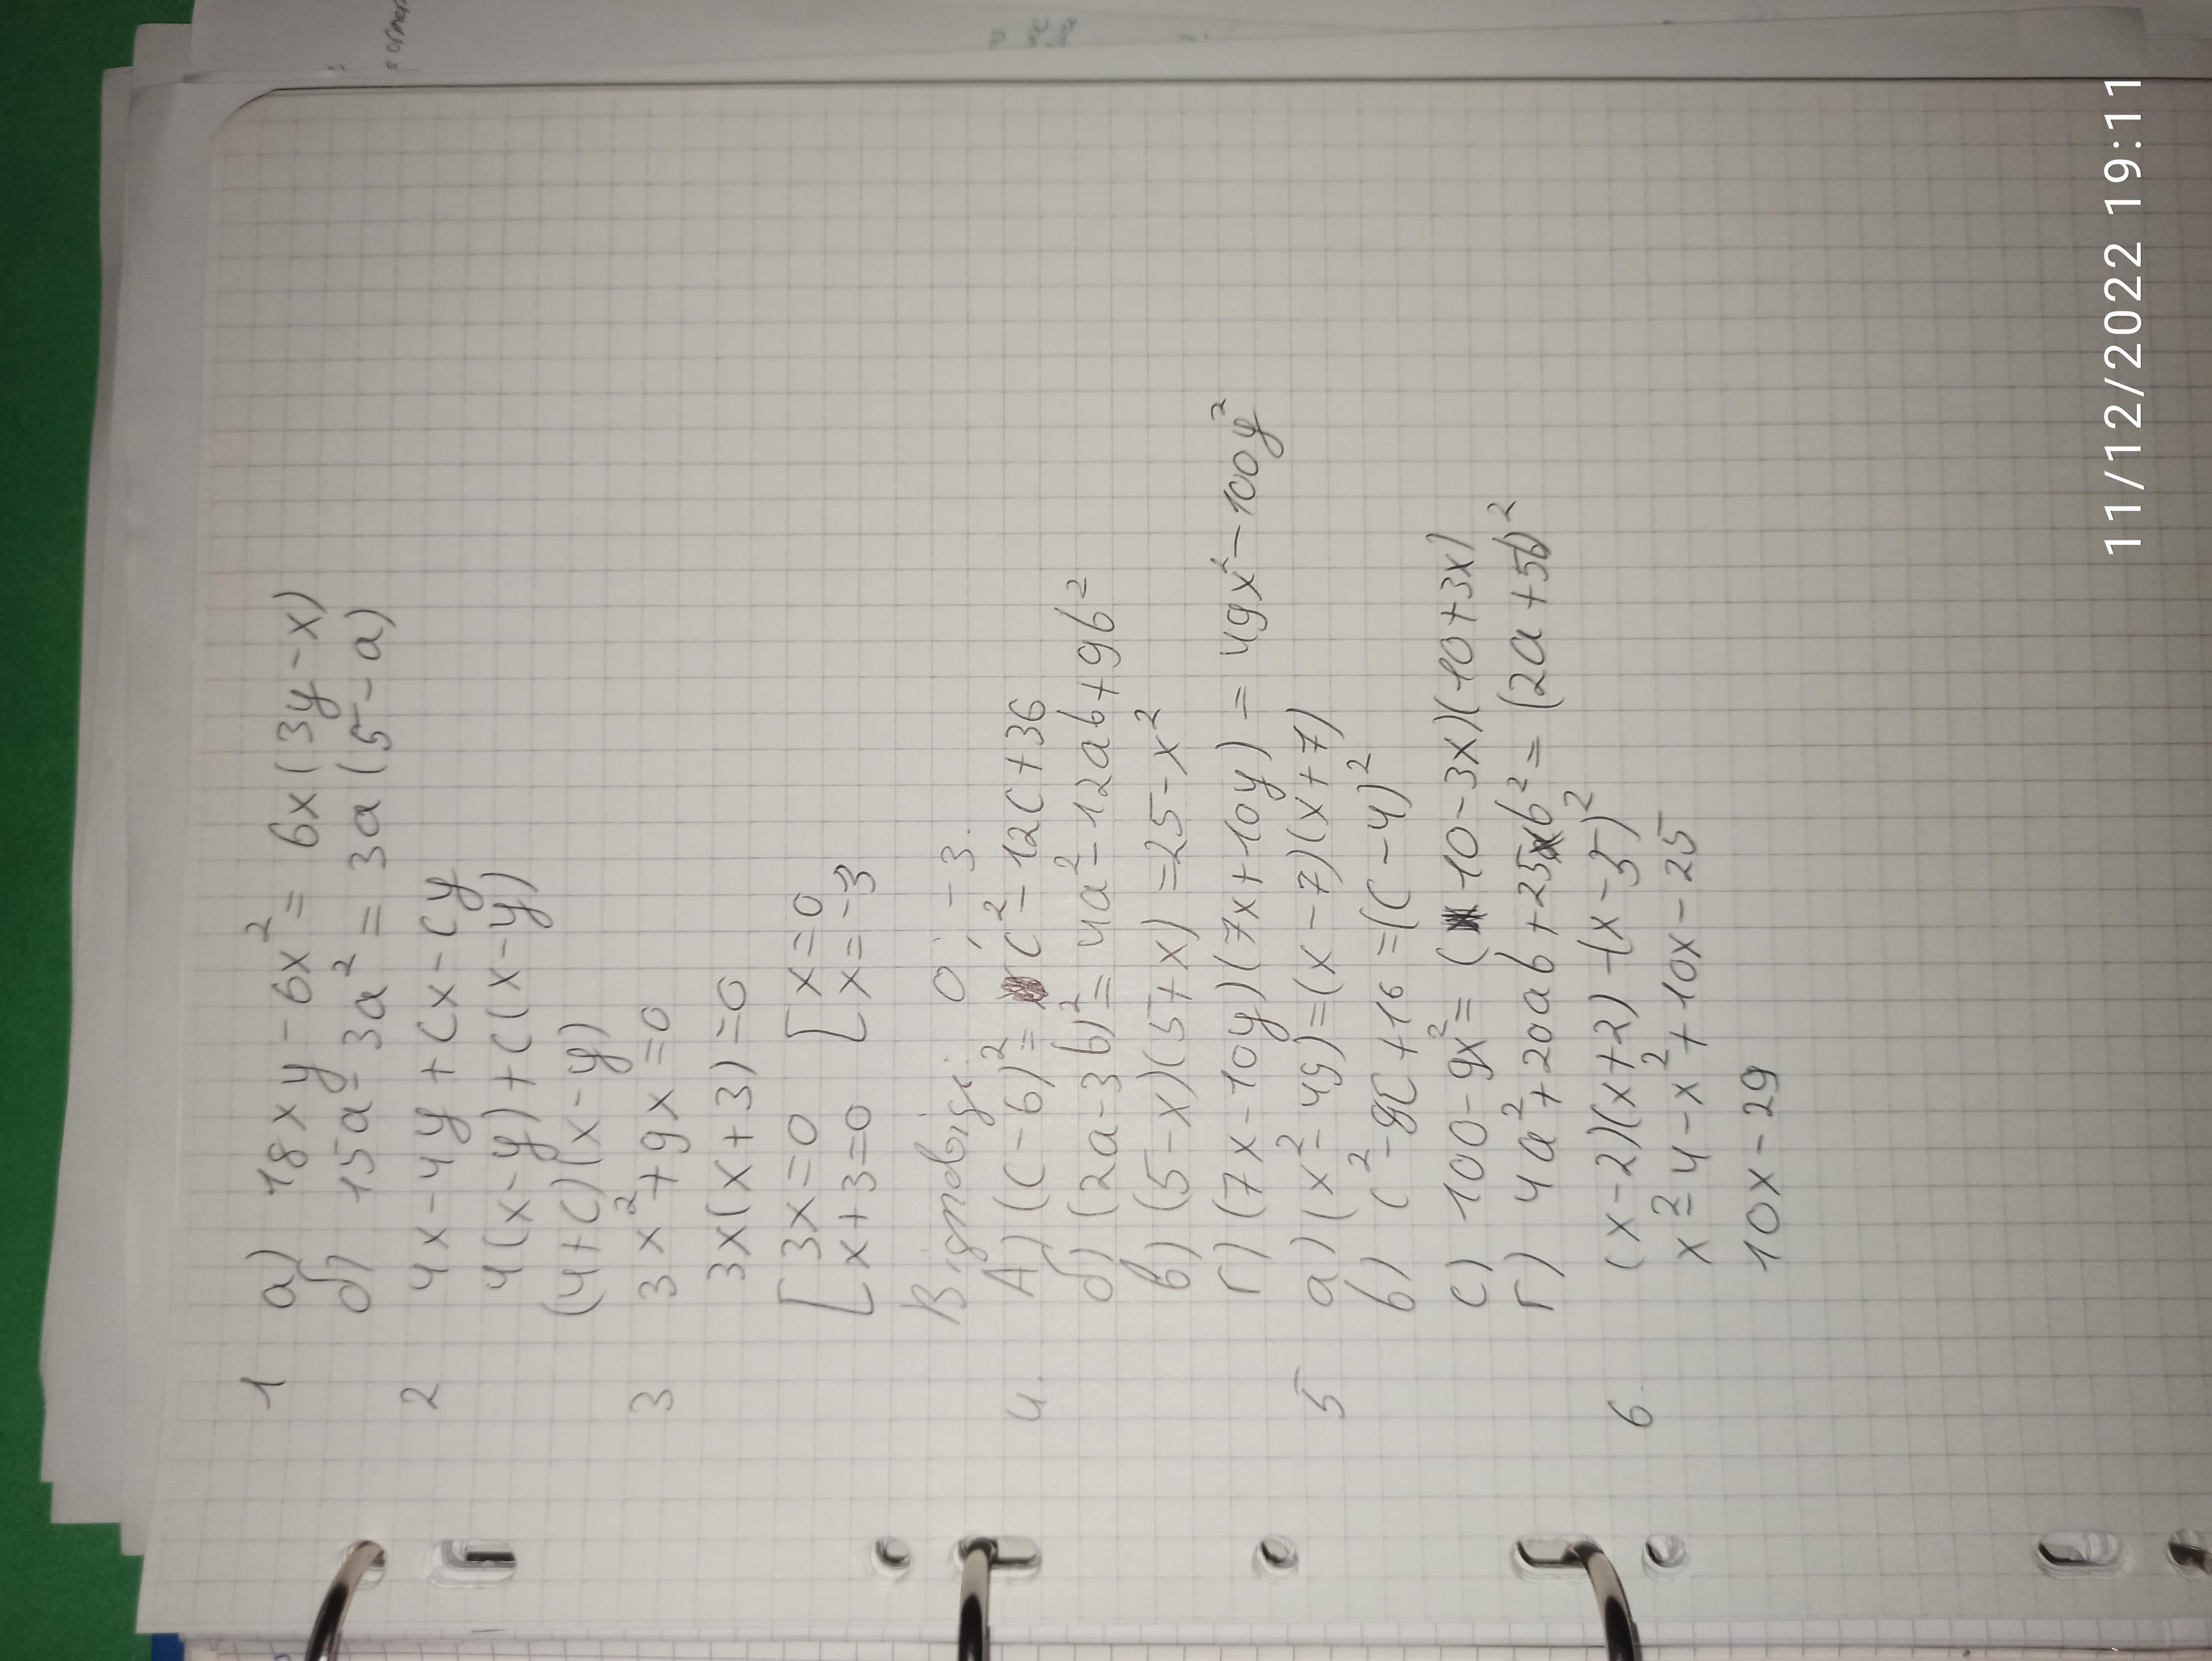 1 а) 18xy - 6x² = 6x(3y - x)
б) 15a - 3a² = 3a(5 - a)
2 4x - 4y + cx - cy
4(x - y) + c(x - y)
(4 + c)(x - y)
3 3x² + 9x = 0
3x(x + 3) = 0
[ 3x = 0 [ x = 0
[ x + 3 = 0 [ x = -3
Відповіді: 0; -3.
4. А) (c - 6)² = c² - 12c + 36
б) (2a - 3b)² = 4a² - 12ab + 9b²
в) (5 - x)(5 + x) = 25 - x²
г) (7x - 10y)(7x + 10y) = 49x² - 100y²
5 а) (x² - 49) = (x - 7)(x + 7)
b) c² - 8c + 16 = (c - 4)²
c) 100 - 9x² = (10 - 3x)(10 + 3x)
г) 4a² + 20ab + 25b² = (2a + 5b)²
6. (x - 2)(x + 2) - (x - 5)²
x² - 4 - x² + 10x - 25
10x - 29
11/12/2022 19:11